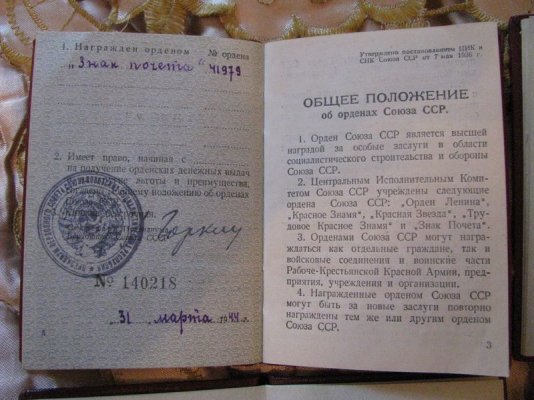 1. Награжден орденом № ордена
„Знак почета" 41979
2. Имеет право, начиная с
на получение орденских денежных выдач
льготы и преимущества,
положению об орденах
Союза
СССР
№ 140218
31 марта 1944 г.
Утверждено постановлением ЦИК и
СНК Союза ССР от 7 мая 1936 г.
ОБЩЕЕ ПОЛОЖЕНИЕ
об орденах Союза ССР.
1. Орден Союза ССР является высшей
наградой за особые заслуги в области
социалистического строительства и обороны
Союза ССР.
2. Центральным Исполнительным Коми-
тетом Союза ССР учреждены следующие
ордена Союза ССР: „Орден Ленина",
„Красное Знамя", „Красная Звезда", „Тру-
довое Красное Знамя" и „Знак Почета".
3. Орденами Союза ССР могут награ-
ждаться как отдельные граждане, так и
войсковые соединения и воинские части
Рабоче-Крестьянской Красной Армии, пред-
приятия, учреждения и организации.
4. Награжденные орденом Союза ССР
могут быть за новые заслуги повторно
награждены тем же или другим орденом
Союза ССР.
3